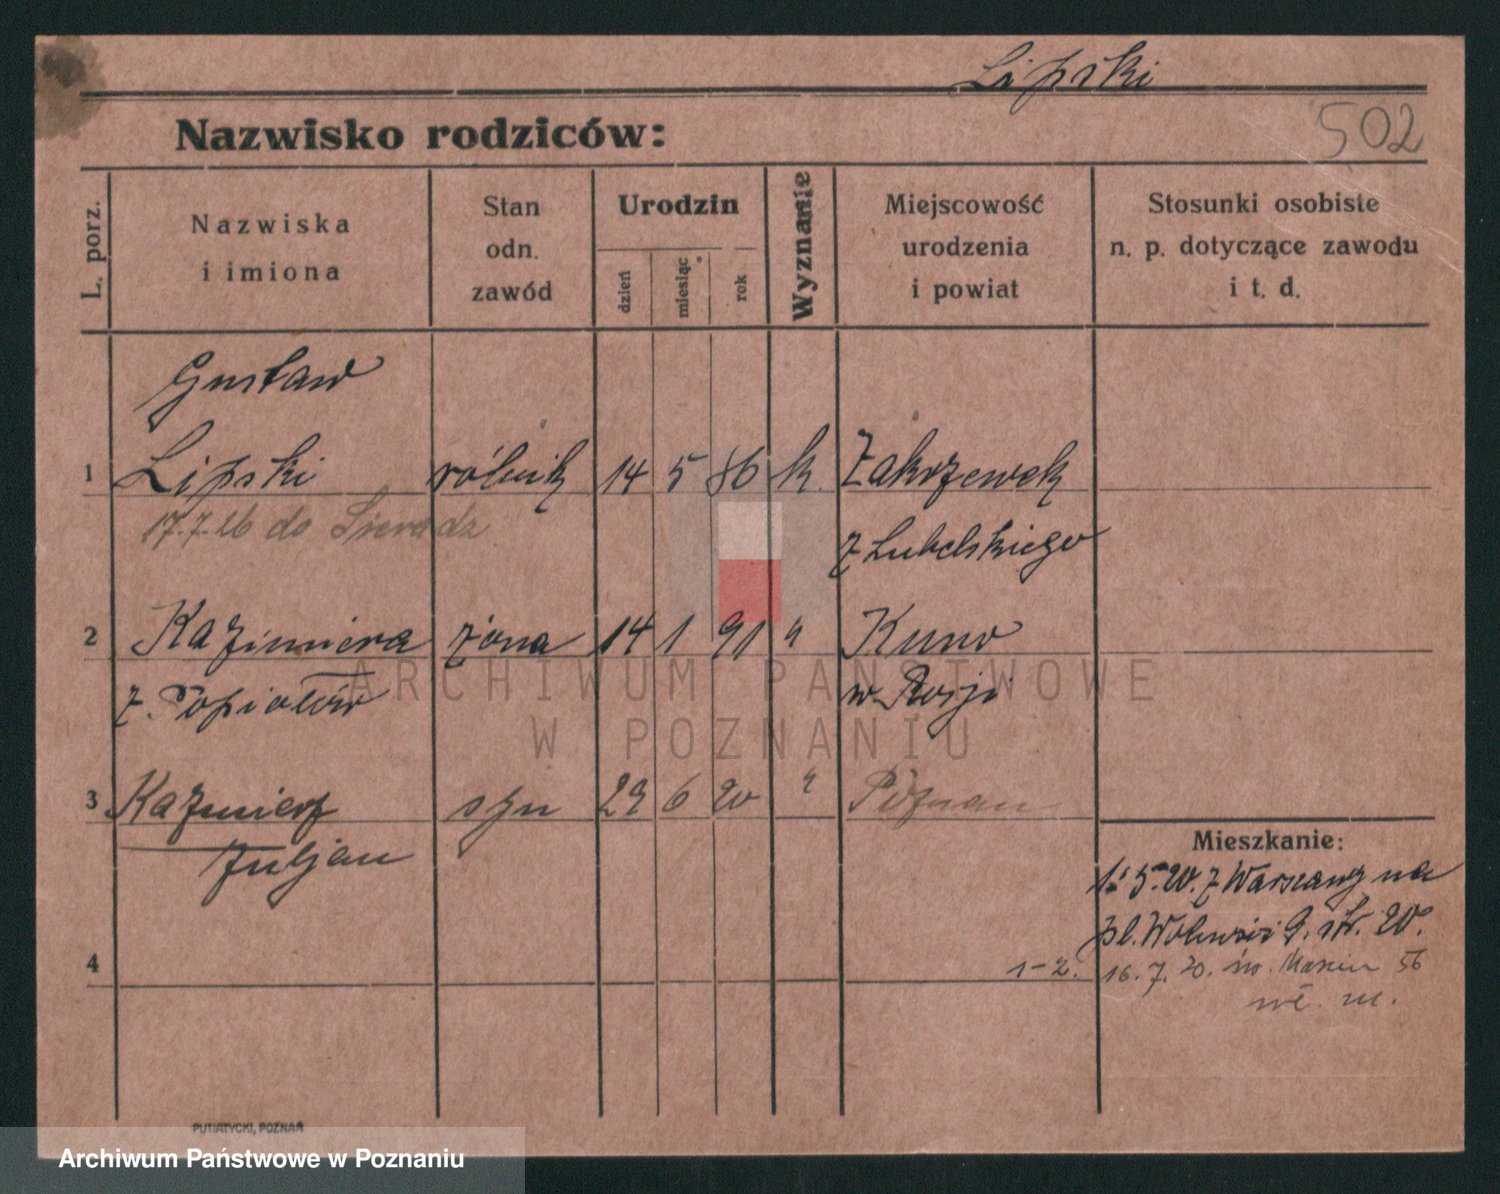 Lipski
502
Nazwisko rodziców:
L. porz.
Nazwiska
i imiona
Stan
odn.
zawód
Urodzin
dzień
miesiąc
rok
Wyznanie
Miejscowość
urodzenia
i powiat
Stosunki osobiste
n. p. dotyczące zawodu
i t. d.
Gustaw
1 Lipski rólnik 14 5 86 k. Zakrzewek
17.7.26 do Sieradz
z Lubelskiego
2 Kazimiera żona 14 1 91 " Kuno
z Popiołów w Rosji
ARCHIWUM PAŃSTWOWE
W POZNANIU
3 Kazmierz syn 29 6 20 " Poznan
Juljan
Mieszkanie:
1. 5. 20. z Warszawy na
pl. 9. 20.
4
1-2. 16. 7. 20. św. Marcin 56
m.
PUTIATYCKI, POZNAŃ
Archiwum Państwowe w Poznaniu